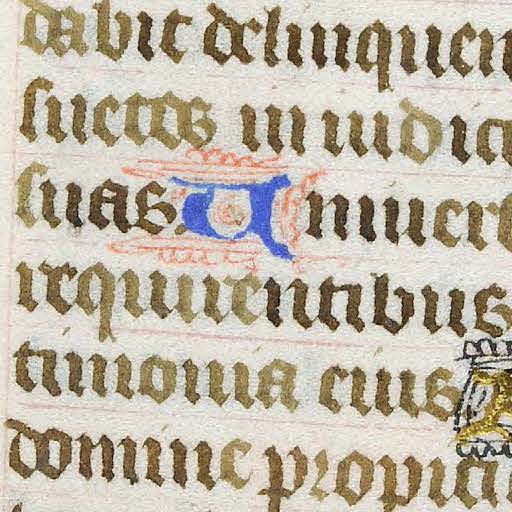 dabit delinquen
suetos in iudic
suas Uniuer
requirentibus
timonia eius
domine propici